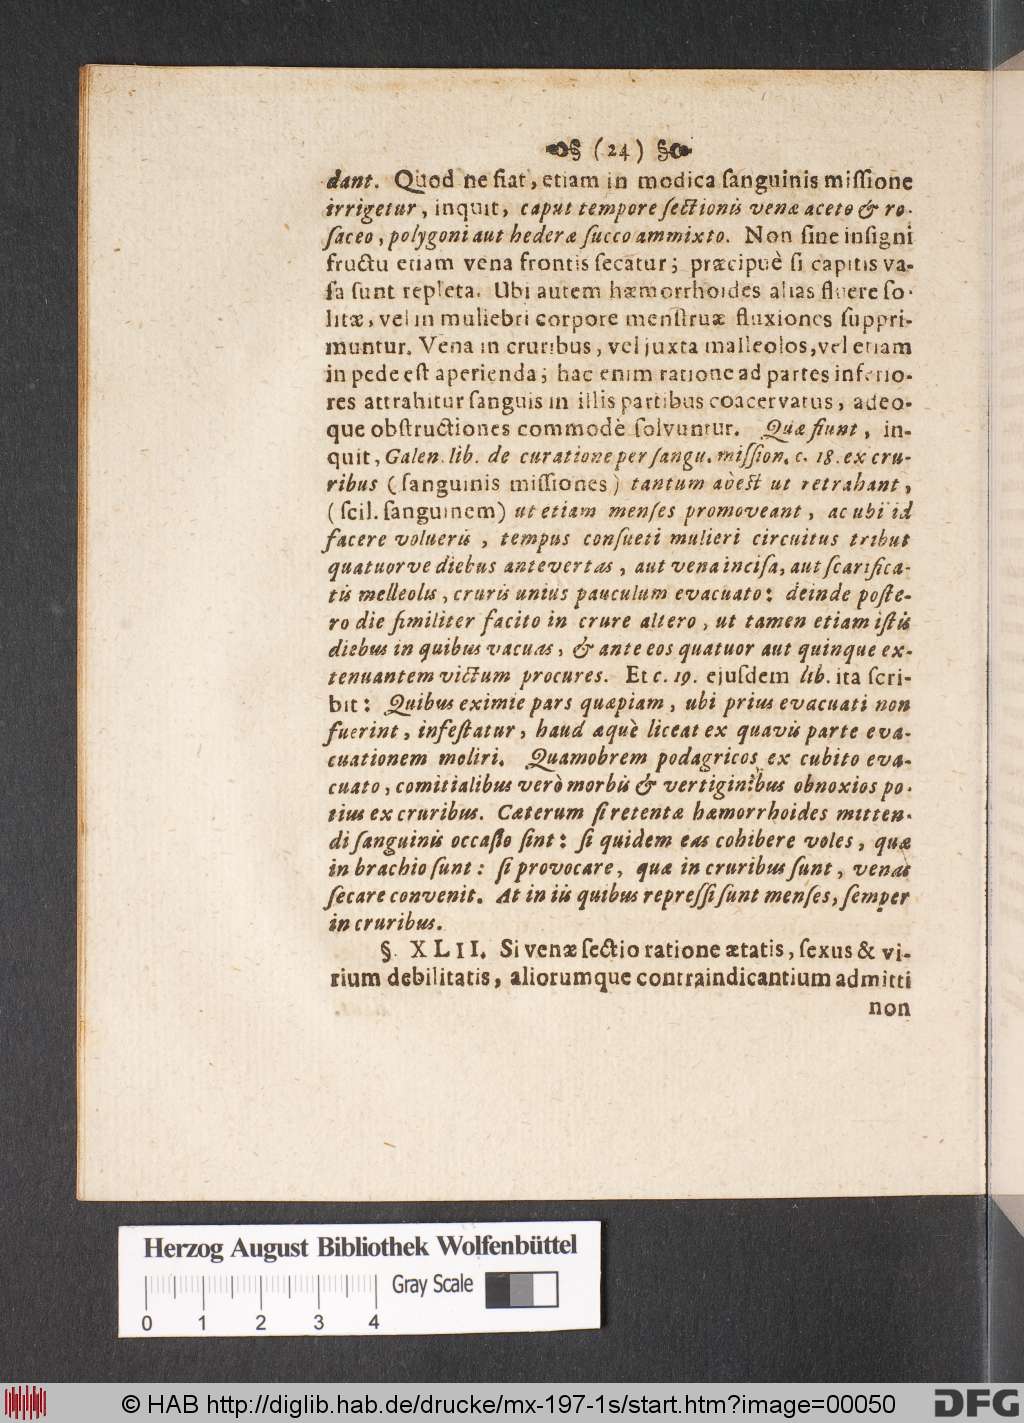 (24)
dant. Quod ne fiat, etiam in modica ſanguinis miſſione
irrigetur, inquit, caput tempore ſectionis venæ aceto & ro-
ſaceo, polygoni aut hederæ ſucco ammixto. Non ſine inſigni
fructu etiam vena frontis ſecatur; præcipuè ſi capitis va-
ſa ſunt repleta. Ubi autem hæmorrhoides alias fluere ſo-
litæ, vel in muliebri corpore menſtruæ fluxiones ſuppri-
muntur. Vena in cruribus, vel juxta malleolos, vel etiam
in pede eſt aperienda; hac enim ratione ad partes inferio-
res attrahitur ſanguis in illis partibus coacervatus, adeo-
que obſtructiones commodè ſolvuntur. Quæ fiunt, in-
quit, Galen. lib. de curatione per ſangu. miſſion. c. 18. ex cru-
ribus (ſanguinis miſſiones) tantum abeſt ut retrahant,
(ſcil. ſanguinem) ut etiam menſes promoveant, ac ubi id
facere volueris, tempus conſueti mulieri circuitus tribut
quatuorve diebus antevertas, aut vena inciſa, aut ſcarifica-
tis melleolis, cruris unius pauculum evacuato: deinde poſte-
ro die ſimiliter facito in crure altero, ut tamen etiam iſtis
diebus in quibus vacuas, & ante eos quatuor aut quinque ex-
tenuantem victum procures. Et c. 19. ejuſdem lib. ita ſcri-
bit: Quibus eximie pars quæpiam, ubi prius evacuati non
fuerint, infeſtatur, haud æquè liceat ex quavis parte eva-
cuationem moliri. Quamobrem podagricos ex cubito eva-
cuato, comitialibus verò morbis & vertiginibus obnoxios po-
tius ex cruribus. Cæterum ſi retentæ hæmorrhoides mitten-
di ſanguinis occaſio ſint: ſi quidem eas cohibere voles, quæ
in brachio ſunt: ſi provocare, quæ in cruribus ſunt, venas
ſecare convenit. At in iis quibus repreſſi ſunt menſes, ſemper
in cruribus.
§. XLII. Si venæ ſectio ratione ætatis, ſexus & vi-
rium debilitatis, aliorumque contraindicantium admitti
non
Herzog August Bibliothek Wolfenbüttel
Gray Scale
0 1 2 3 4
© HAB http://diglib.hab.de/drucke/mx-197-1s/start.htm?image=00050
DFG